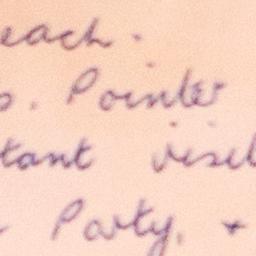 each.
s. Pointer
tant visit
Party, +